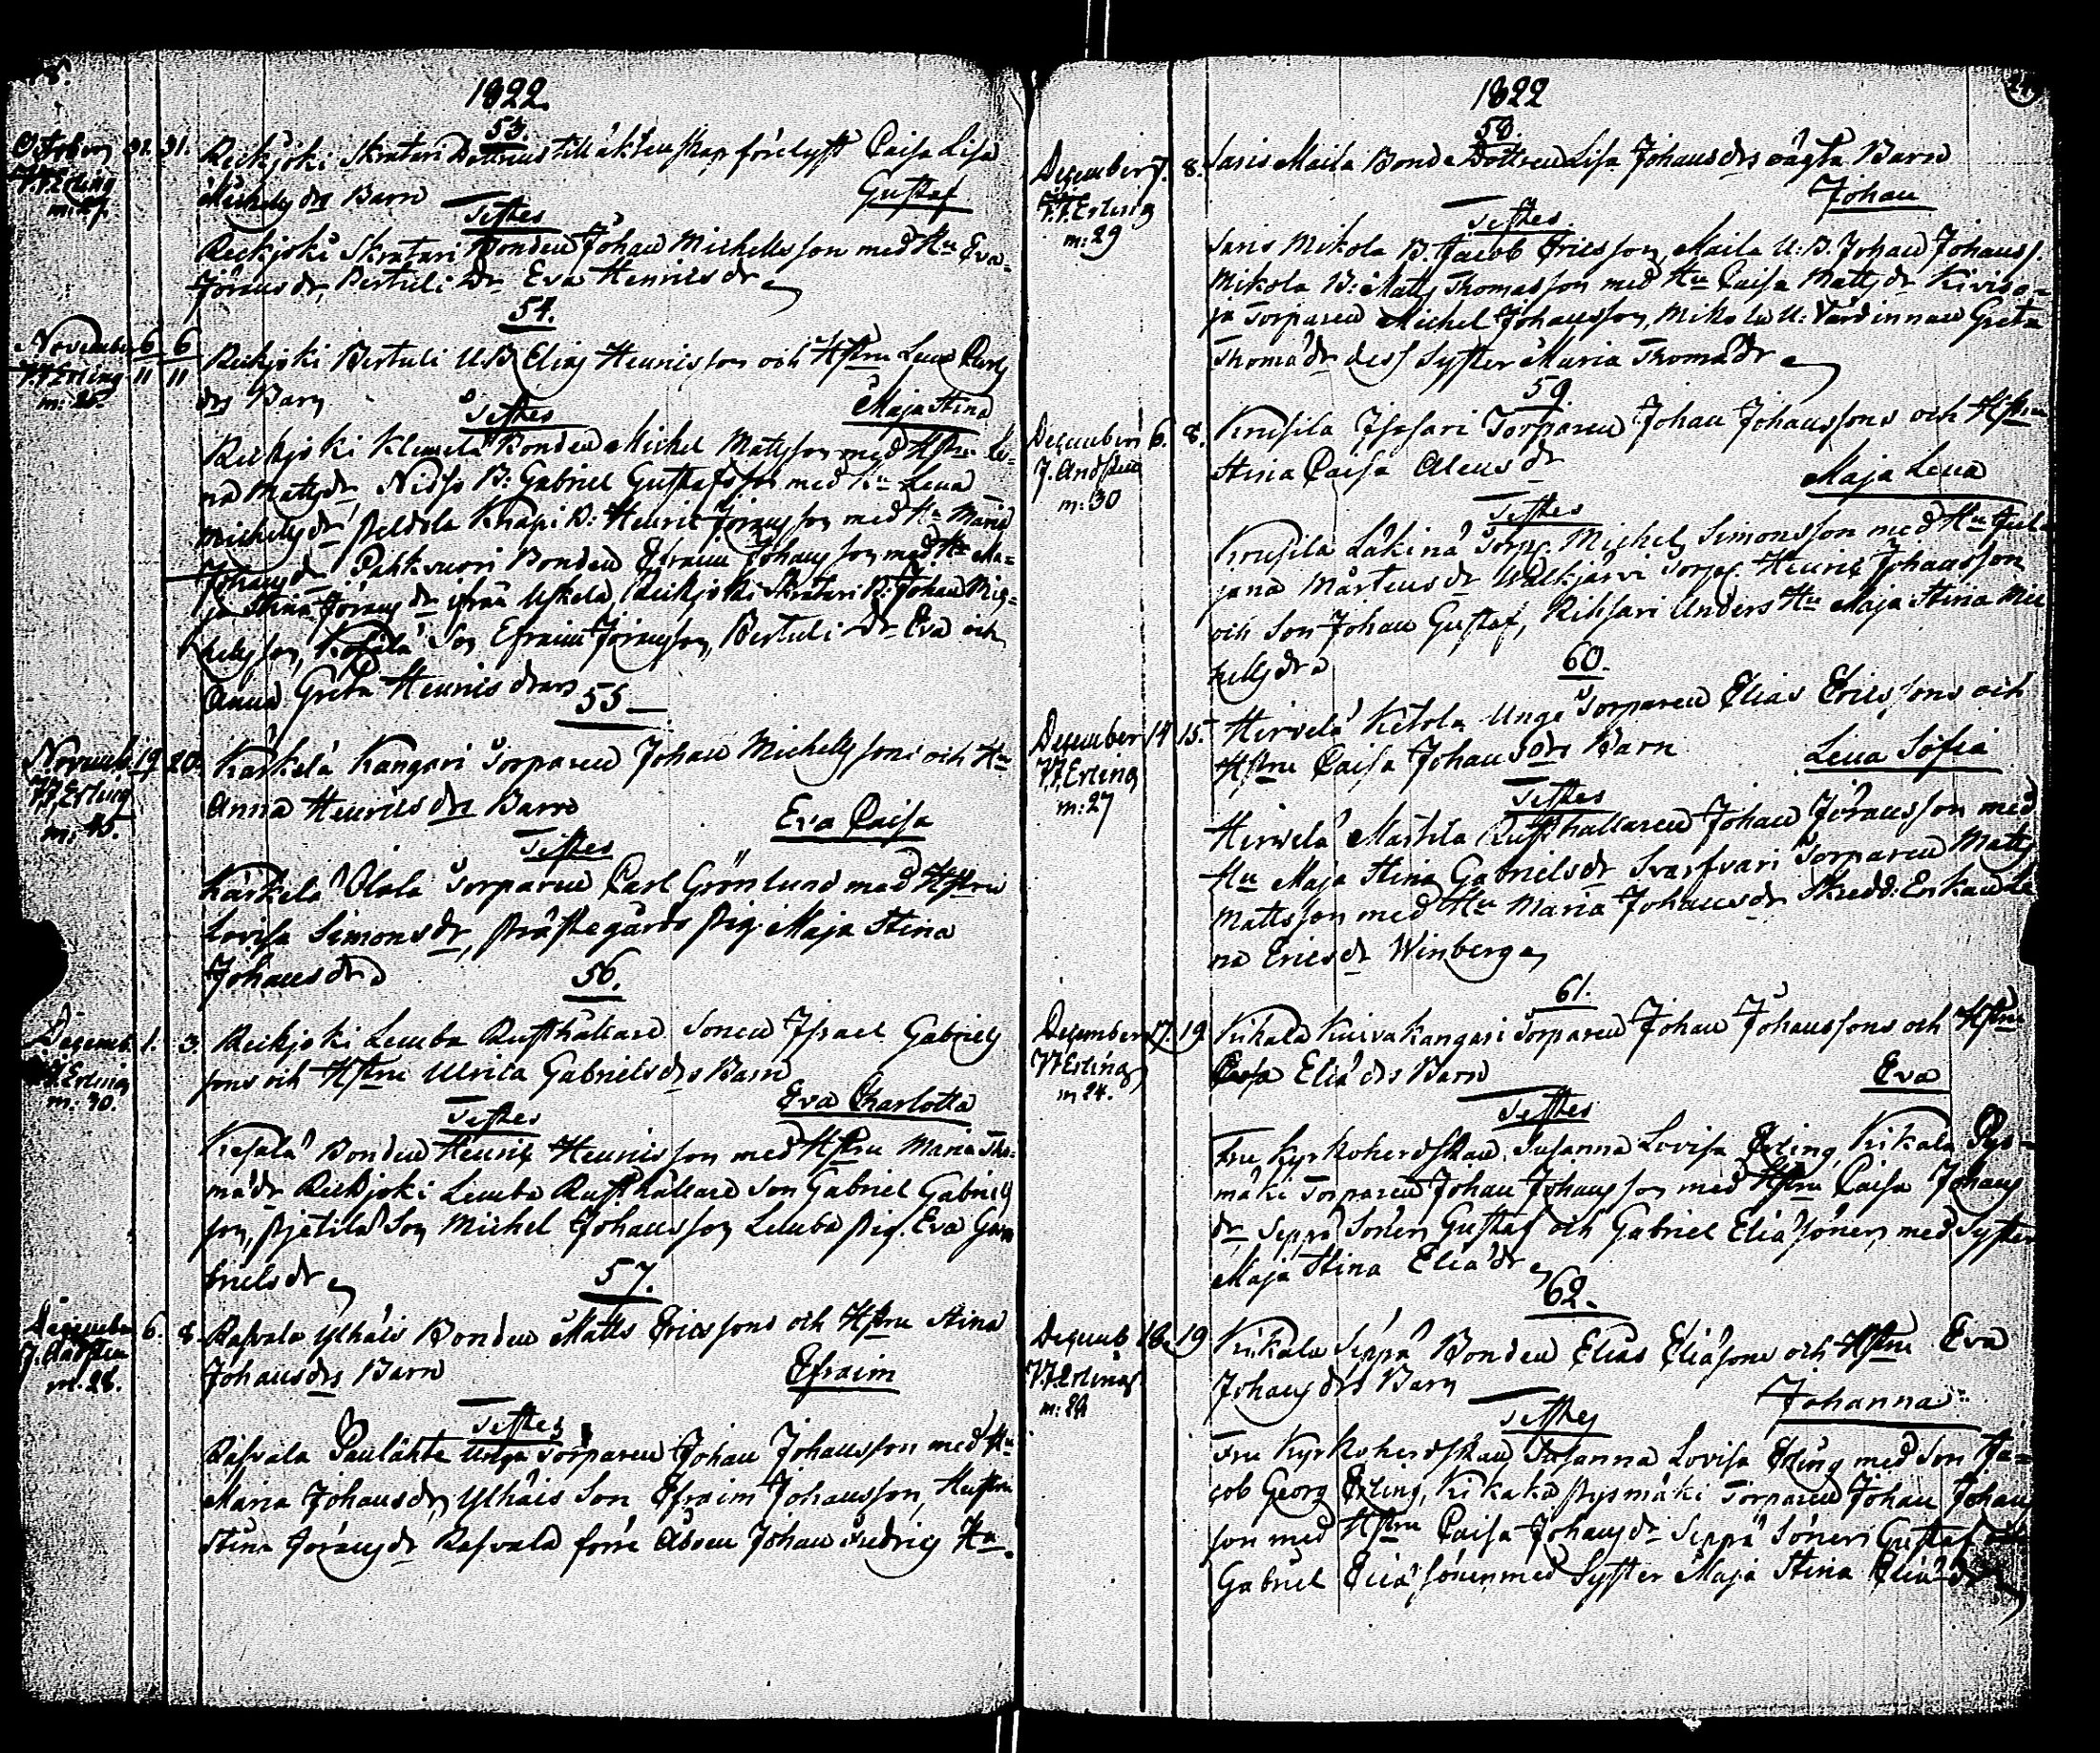 1822.
53.
October 31. 31. Reikjoki Skratari Dottrens till äktenskap förelofft Caisa Lisa
J.J. Erling
Michels drs Barn Gustaf
m: 27.
Testes
Reikjoki Skratari Bonden Johan Michelsson med Hu Eva
Jöransdr, Bertuli Dr Eva Henricsdr
54.
November 6 6
J.J. Erling 11 11
Reikjoki Bertuli U.B. Elias Henricsson och Hstru Lena Carls
m: 26.
drs Barn Maja Stina
Testes
Reikjoki Klemelä Bonden Michel Mattsson med Hstru Le-
na Mattsdr B: Gabriel Gustafsson med Hu Lena
Michelsdr, Peldola Knapi B: Henric Jöransson med Hu Maria
Johansdr Pahkvuori Bonden Efraim Johansson med Hu Ma-
ja Stina Jöransdr ifrån Uskela, Reikjoki Skratari B: Johan Mic-
helsson, Son Efraim Jöransson, Bertuli Dr Eva och
Anna Greta Henricsdrar
55
Novemb. 19 20. Kärkelä Kangari Torparen Johan Michelssons och Hu
J.J. Erling
Anna Henricsdrs Barn Eva Caisa
m: 45.
Testes
Kärkelä Olala Torparen Carl Grönlund med Hstru
Lovisa Simonsdr, Prästegårds Pig. Maja Stina
Johansdr
56.
Decemb. 1. 3. Reikjoki Lemba Rusthållare Sonen Israel Gabriels
J.J. Erling
sons och Hstru Ulrica Gabrielsdrs Barn
m: 30.
Eva Charlotta
Testes
Bonden Henric Henricsson med Hstru Maria Tho-
mädr Reikjoki Lemba Rusthållare Son Gabriel Gabriels
son, Pjetilä Son Michel Johansson Lemba Pig. Eva Ga-
brielsdr
57.
December 6. 8. Rasvala Ylhäis Bonden Matts Ericssons och Hstru Stina
J. Andsten
Johansdrs Barn Efraim
m: 28.
Testes
Rasvala Paulähte Unga Torparen Johan Johansson med Hu
Maria Johansdr, Ylhäis Son Efraim Johansson, Hustru
Stina Jöransdr Rasvala förre Åboen Johan Fredrics Hu.
1822
58.
December 7. 8. Saris Maila Bonde Dottren Lisa Johansdrs oägta Barn
J.J. Erling
Johan
m: 29
Testes
Saris Mikola B. Jacob Ericsson, Maila U.B. Johan Johanss.
Mikola B: Matts Thomasson med Hu Caisa Mattsdr Kiviso-
ja Torparen Michel Johansson, Mikola U: Värdinnan Greta
Thomädr dess Syster Maria Thomädr
59.
December 6. 8. Krusila Isosari Torparen Johan Johanssons och Hstru
J. Andsten
Stina Caisa Alensdr Maja Lena
m: 30
Testes
Krusila Läkinä Torp. Michels Simonsson med Hu Jul-
jana Mårtensdr Walkjärvi Torp. Henric Johansson
och Son Johan Gustaf, Riksari Anders Hu Maja Stina Mic-
helsdr
60.
December 14 15. Hirvelä Ketola Unge Torparen Elias Ericssons och
J.J. Erling
Hstru Caisa Johansdrs Barn Lena Sofia
m: 27
Testes
Hirvelä Markila Rusthållaren Johan Jöransson med
Hu Maja Stina Gabrielsdr Svarfvari Torparen Matts
Mattsson med Hu Maria Johansdr Skredd: Enkan Le
na Ericsdr Winberg
61.
December 17. 19. Kikala Kuivakangari Torparen Johan Johanssons och Hstru
J.J. Erling
Caisa Eliädrs Barn Eva
m 24.
Testes
Fru Kyrkoherdskan Susanna Lovisa Erling, Kikala Pys-
mäki Torparen Johan Johansson med Hstru Caisa Johans
dr Seppä Söner Gustaf och Gabriel Eliäsöner med Syster
Maja Stina Eliädr
62.
Decemb. 18 19 Kikala Seppä Bonden Elias Eliäsons och Hstru Eva
J.J. Erling
Johansdrs Barn Johanna
m: 44
Testes
Fru Kyrkoherdskan Susanna Lovisa Erling med Son Ja-
cob Georg Erling, Kikala Pysmäki Torparen Johan Johans
son med Hstru Caisa Johansdr Seppä Söner Gustaf
Gabriel Eliäsöner med Syster Maja Stina Eliädr